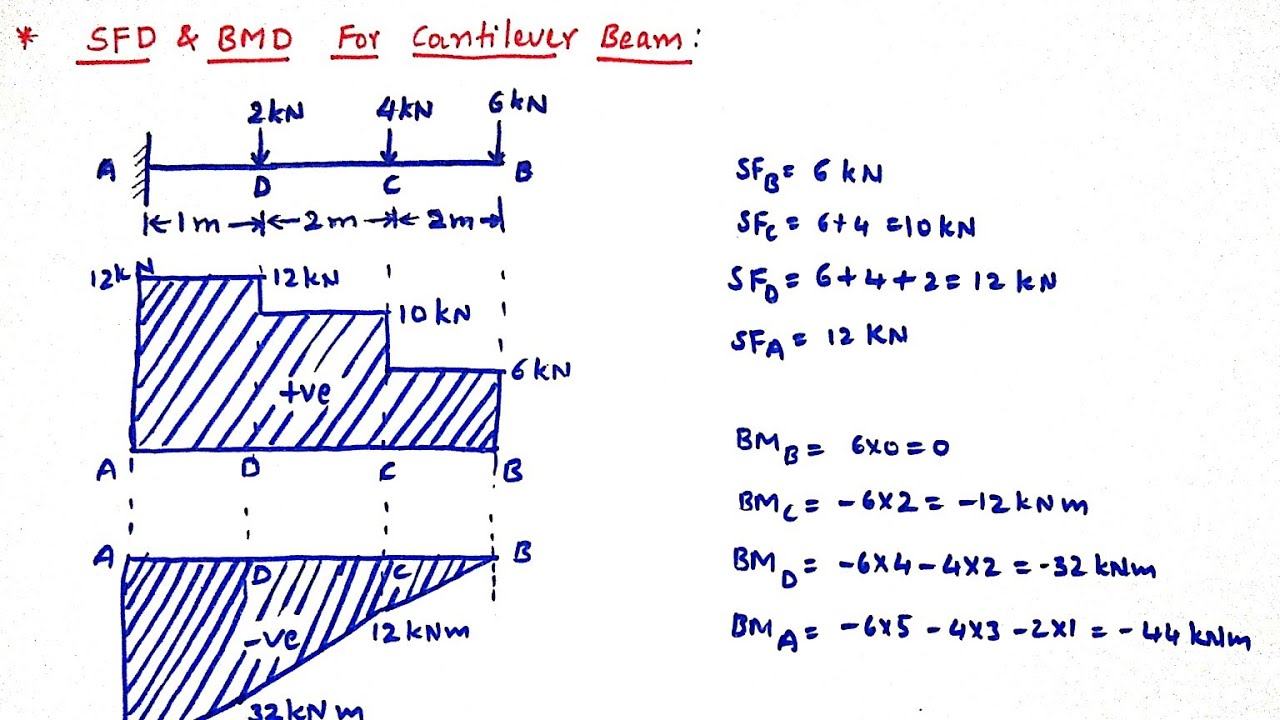 * SFD & BMD For Cantilever Beam:
2kN 4kN 6kN
A D C B
1m 2m 2m
12kN 12kN
10 kN
6 kN
+ve
A D C B
A D C B
-ve
12 kNm
32 kNm
SF_B = 6 kN
SF_C = 6+4 = 10 kN
SF_D = 6+4+2 = 12 kN
SF_A = 12 KN
BM_B = 6×0=0
BM_C = -6×2 = -12 kNm
BM_D = -6×4 - 4×2 = -32 kNm
BM_A = -6×5 - 4×3 - 2×1 = -44 kNm